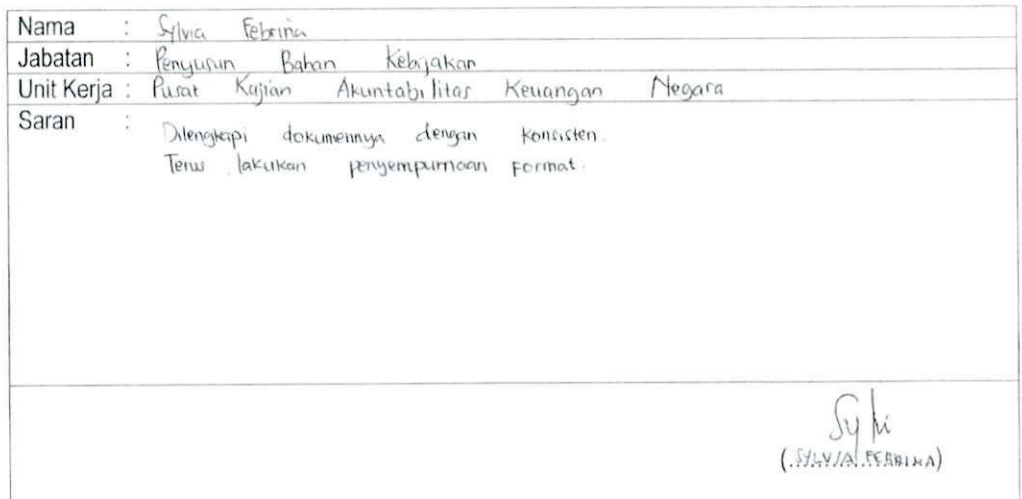 Nama : Sylvia Febrina
Jabatan : Penyusun Bahan Kebijakan
Unit Kerja : Pusat Kajian Akuntabilitas Keuangan Negara
Saran : Dilengkapi dokumennya dengan konsisten.
Terus lakukan penyempurnaan format.
(SYLVIA FEBRINA)